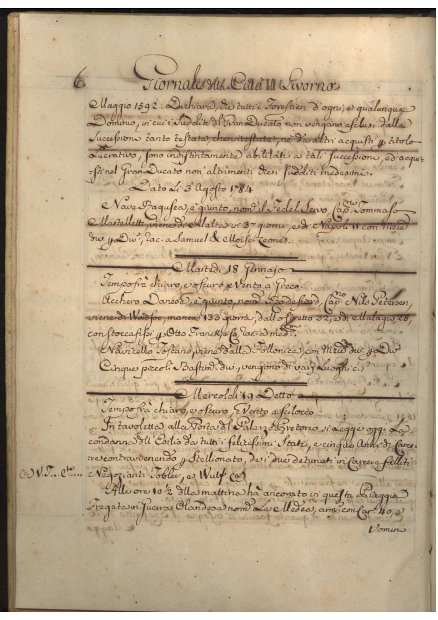 6 Giornale della Città di Livorno
Maggio 1592: Dichiara, che tutti i Forestieri d'ogni, e qualunque
Dominio, in cui i Sudditi di Gran Ducato non vengano esclusi dalle
Successioni tanto testate, che intestate, ne da altri acquisti p titolo
lucrativo, sono indistintamente abilitati a tali successione, ed acqui=
sti nel Gran Ducato non altrimenti che i sudditi medesimi.
Dato Li 3 Agosto 1784.
Nave Ragusea, è giunto, nom. il Fedel Servo, Cap. Tommaso
Martelletti, viene di Malta in 37 giorni, e di Napoli 11 con
div. p Div. rac. a Samuel & Moisè Leone.
Martedi 18 Gennajo
Tempo frà chiaro, e oscuro, e Vento a Greco.
Uchero Danese, è giunto, nom. Cap.no Nils Petersen,
viene di manca 133 giorni, dallo Stretto 32, e da Malaga 28,
con Stoccafissi p d.o Francesco
Navicello Toscano, viene dalla Follonica, con p Div.
Cinque piccoli Bastim. div. vengono di varj Luoghi
Mercoledi 19 Detto
Tempo frà chiaro, e oscuro, E Vento a Scilocco.
In tavoletta alla Porta di Palazz. Pretorio si legge oggi La
condanna dell' Esilio da tutti i felicissimi Stati, e cinque Anni di Carce=
re contravvenendo p Stellionato, dei due detenuti in Carcere falliti
Negozianti Tobler, e Wulf
All'ore 10½ della mattina hà ancorato in questa Spiaggia
Fregata in Guerra Olandese nom. La Medea, arm. con Can. 40, e
Uomin